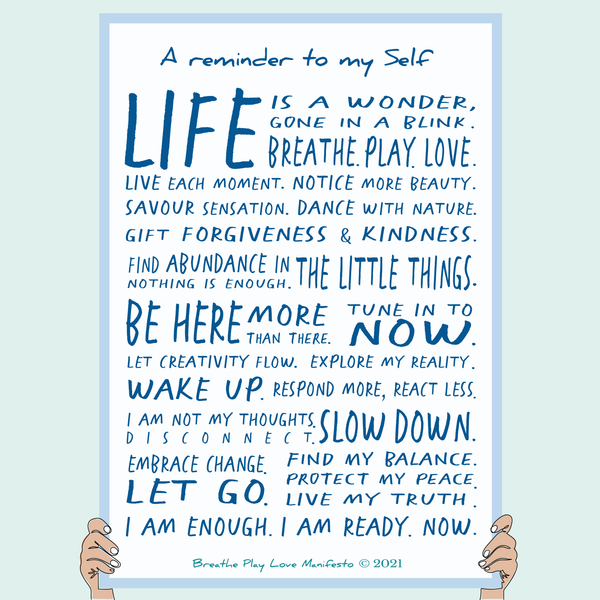 A reminder to my Self
LIFE IS A WONDER,
GONE IN A BLINK.
BREATHE. PLAY. LOVE.
LIVE EACH MOMENT. NOTICE MORE BEAUTY.
SAVOUR SENSATION. DANCE WITH NATURE.
GIFT FORGIVENESS & KINDNESS.
FIND ABUNDANCE IN THE LITTLE THINGS.
NOTHING IS ENOUGH.
BE HERE MORE
THAN THERE.
TUNE IN TO
NOW.
LET CREATIVITY FLOW. EXPLORE MY REALITY.
WAKE UP. RESPOND MORE, REACT LESS.
I AM NOT MY THOUGHTS.
DISCONNECT. SLOW DOWN.
EMBRACE CHANGE.
LET GO.
FIND MY BALANCE.
PROTECT MY PEACE.
LIVE MY TRUTH.
I AM ENOUGH. I AM READY. NOW.
Breathe Play Love Manifesto © 2021